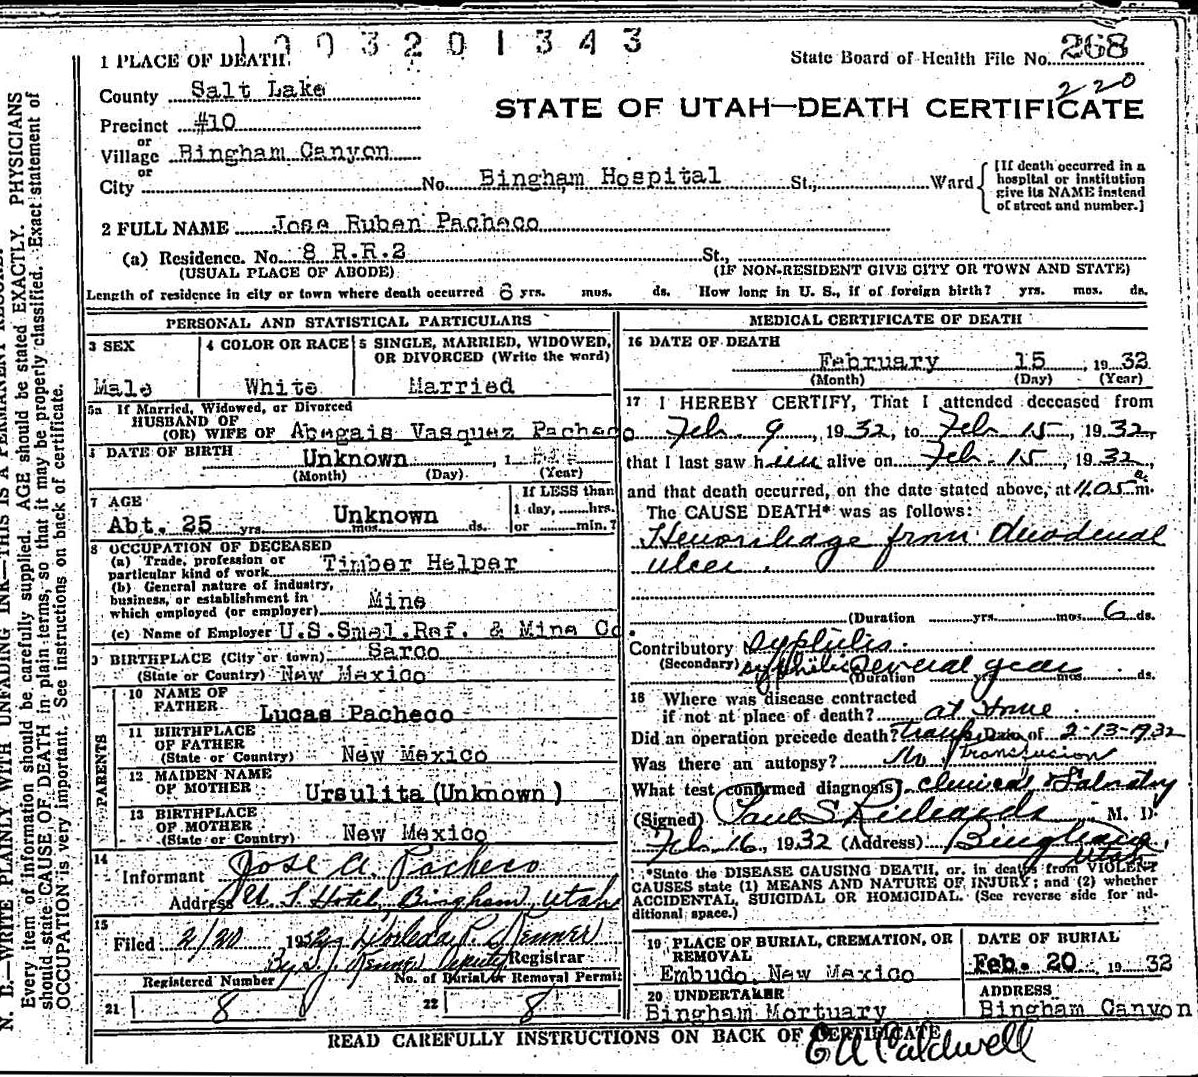 1003201343
1 PLACE OF DEATH
State Board of Health File No. 268
220
County Salt Lake
STATE OF UTAH—DEATH CERTIFICATE
Precinct #10
or
Village Bingham Canyon
or
City No. Bingham Hospital St., Ward
[If death occurred in a
hospital or institution
give its NAME instead
of street and number.]
2 FULL NAME Jose Ruben Pacheco
(a) Residence. No. 8 R.R.2 St.,
(USUAL PLACE OF ABODE) (IF NON-RESIDENT GIVE CITY OR TOWN AND STATE)
Length of residence in city or town where death occurred 6 yrs. mos. ds. How long in U. S., if of foreign birth? yrs. mos. ds.
PERSONAL AND STATISTICAL PARTICULARS
3 SEX
Male
4 COLOR OR RACE
White
5 SINGLE, MARRIED, WIDOWED,
OR DIVORCED (Write the word)
Married
5a If Married, Widowed, or Divorced
HUSBAND OF
(OR) WIFE OF Abegais Vasquez Pacheco
DATE OF BIRTH
Unknown , 1
(Month) (Day) (Year)
7 AGE
Abt. 25 yrs. Unknown mos. ds.
If LESS than
1 day, hrs.
or min.?
8 OCCUPATION OF DECEASED
(a) Trade, profession or
particular kind of work Timber Helper
(b) General nature of industry,
business, or establishment in
which employed (or employer) Mine
(c) Name of Employer U.S.Smel.Ref. & Mine Co
9 BIRTHPLACE (City or town) Sarco
(State or Country) New Mexico
PARENTS
10 NAME OF
FATHER Lucas Pacheco
11 BIRTHPLACE
OF FATHER
(State or Country) New Mexico
12 MAIDEN NAME
OF MOTHER Ursulita (Unknown)
13 BIRTHPLACE
OF MOTHER
(State or Country) New Mexico
14
Informant Jose A. Pacheco
Address U. S. Hotel, Bingham, Utah
15
Filed 2/20 1932
Registrar
Deputy
Registered Number
21 8
No. of Burial or Removal Permit
22 8
MEDICAL CERTIFICATE OF DEATH
16 DATE OF DEATH
February 15 , 1932
(Month) (Day) (Year)
17 I HEREBY CERTIFY, That I attended deceased from
Feb. 9, 1932, to Feb. 15, 1932,
that I last saw him alive on Feb. 15, 1932,
and that death occurred, on the date stated above, at 1105 a m.
The CAUSE DEATH* was as follows:
Hemorrhage from duodenal
ulcer.
(Duration yrs. mos. 6 ds.
Contributory Syphilis.
(Secondary) syphilis several years
(Duration yrs. mos. ds.
18 Where was disease contracted
if not at place of death? at Home
Did an operation precede death? Date of 2-13-1932
transfusion
Was there an autopsy? No
What test confirmed diagnosis? Clinical & Labratory
(Signed) Paul S. Richards M. D.
Feb. 16, 1932 (Address) Bingham,
Utah
*State the DISEASE CAUSING DEATH, or, in deaths from VIOLENT
CAUSES state (1) MEANS AND NATURE OF INJURY; and (2) whether
ACCIDENTAL, SUICIDAL OR HOMICIDAL. (See reverse side for ad-
ditional space.)
19 PLACE OF BURIAL, CREMATION, OR
REMOVAL
Embudo, New Mexico
DATE OF BURIAL
Feb. 20 1932
20 UNDERTAKER
Bingham Mortuary
ADDRESS
Bingham Canyon
READ CAREFULLY INSTRUCTIONS ON BACK OF CERTIFICATE
E A Caldwell
N. B.—WRITE PLAINLY WITH UNFADING INK—THIS IS A PERMANENT RECORD.
Every item of information should be carefully supplied. AGE should be stated EXACTLY. PHYSICIANS
should state CAUSE OF DEATH in plain terms, so that it may be properly classified. Exact statement of
OCCUPATION is very important. See instructions on back of certificate.